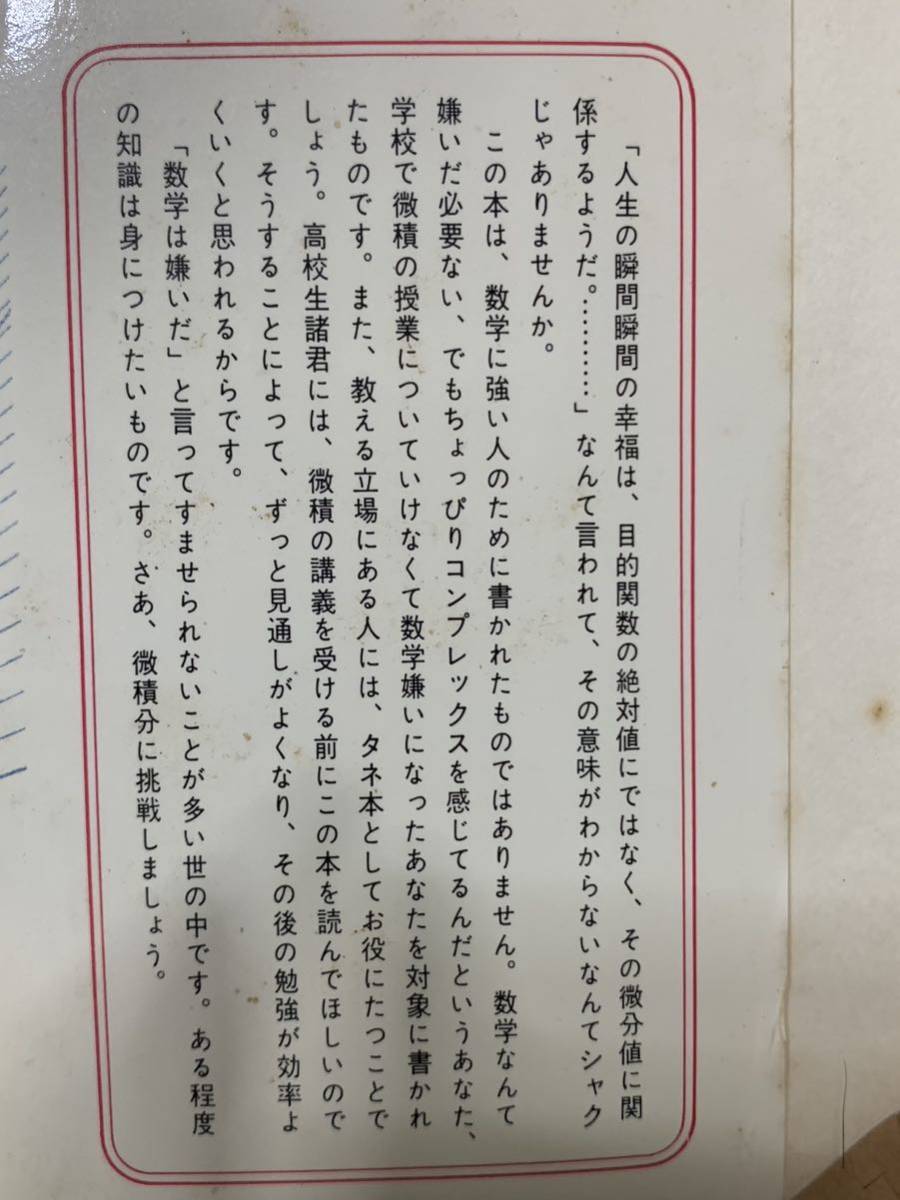 「人生の瞬間瞬間の幸福は、目的関数の絶対値にではなく、その微分値に関
係するようだ。………」なんて言われて、その意味がわからないなんてシャク
じゃありませんか。
この本は、数学に強い人のために書かれたものではありません。数学なんて
嫌いだ必要ない、でもちょっぴりコンプレックスを感じてるんだというあなた、
学校で微積の授業についていけなくて数学嫌いになったあなたを対象に書かれ
たものです。また、教える立場にある人には、タネ本としてお役にたつことで
しょう。高校生諸君には、微積の講義を受ける前にこの本を読んでほしいので
す。そうすることによって、ずっと見通しがよくなり、その後の勉強が効率よ
くいくと思われるからです。
「数学は嫌いだ」と言ってすませられないことが多い世の中です。ある程度
の知識は身につけたいものです。さあ、微積分に挑戦しましょう。